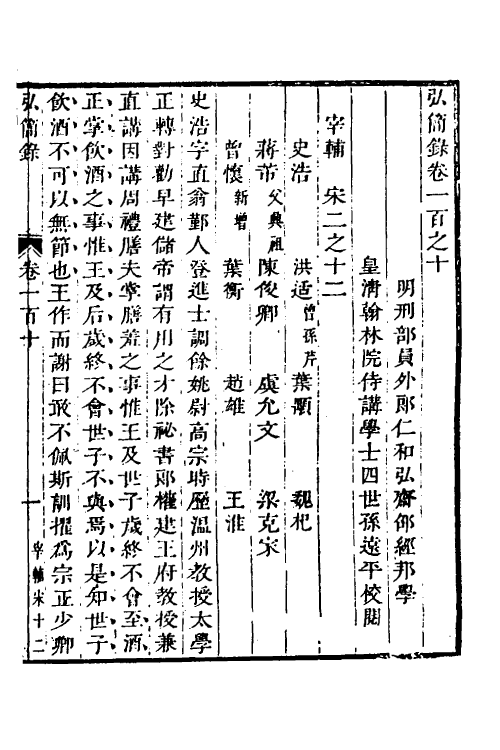 弘簡錄卷一百之十
明刑部員外郎仁和弘齋邵經邦學
皇清翰林院侍講學士四世孫遠平校閱
宰輔　宋二之十二
史浩　洪适曾孫芹　葉顒　魏杞
蔣芾父興祖　陳俊卿　虞允文　梁克家
曾懷新增　葉衡　趙雄　王淮
史浩字直翁鄞人登進士調餘姚尉高宗時歷溫州教授太學
正轉對勸早建儲帝謂有用之才除祕書郎權建王府教授兼
直講因講周禮膳夫掌膳羞之事惟王及世子歲終不會至酒
正掌飲酒之事惟王及后歲終不會世子不與焉以是知世子
飲酒不可以無節也王作而謝曰敢不佩斯訓擢爲宗正少卿
弘簡錄　卷一百十　一　宰輔宋十二